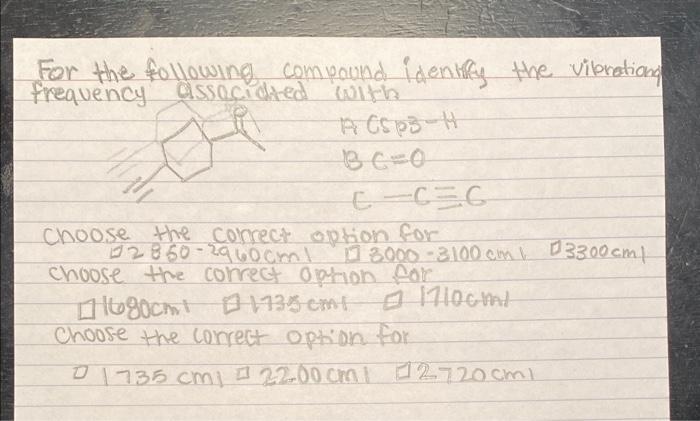 For the following compound identify the vibrational
frequency associated with
O
A Csp3-H
B C=O
C -C≡C
choose the correct option for
□ 2860-2960cm1 □ 3000-3100cm1 □ 3300cm1
choose the correct option for
□ 1680cm1 □ 1735cm1 □ 1710cm1
Choose the correct option for
□ 1735cm1 □ 2200cm1 □ 2720cm1